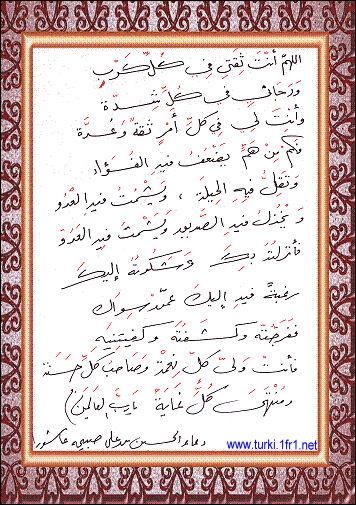 اللهمّ أنْتَ ثِقَتي في كُلِّ كَرْبٍ
وَرَجَائي في كُلِّ شِدّةٍ
وأنتَ لي في كُلِّ أمْرٍ ثقةٌ وَعُدَّةٌ
فكم مِنْ هَمٍّ يَضْعُفُ فيهِ الفُؤَاد
وَتَقِلُّ فيهِ الحيلة ، وَيشْمُتُ فيهِ العَدُو
وَيَخْذُلُ فيهِ الصَّديقُ وَيَشْمتُ فيهِ العَدُوّ
فأنزلتُهُ بِكَ وَشَكَوتُهُ إليكَ
رغبةً فيهِ إليكَ عمّن سِوَاك
ففرّجْتَهُ وكَشَفْتَهُ وكَفَيْتَنِيهِ
فأنت وليُّ كلِّ نعمةٍ وَصَاحبُ كلِّ حَسَنَة
ومُنْتَهَى كُلِّ غَايَةٍ يَارَبَّ العَالَمين
دعاء الحسين بن علي صبيحة عاشور
www.turki.1fr1.net